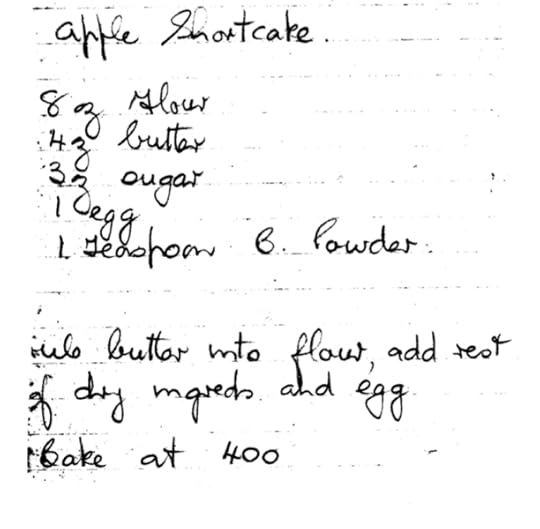 apple Shortcake.
8 oz flour
4 oz butter
3 oz sugar
1 egg
1 teaspoon B. Powder.
rub butter into flour, add rest
of dry ingreds. and egg
Bake at 400